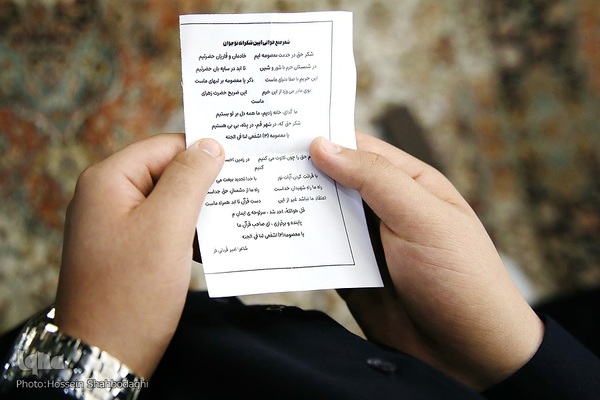 شعر جمع خوانی آیین شکرانه نوجوان
شکر حق در خدمت معصومه ایم خادمان و قاریان حضرتیم
در شبستان حرم با شور و شین تا ابد در سایه بان حضرتیم
این حریم با صفا دنیای ماست ذکر یا معصومه بر لبهای ماست
بوی مادر می وزد از این حرم این ضریح حضرت زهرای
ماست
ما گدای خانه زادیم، ما همه دل بر تو بستیم
شکر حق که، در شهر قم، در پناه بی بی هستیم
یا معصومه (۳) اشفعی لنا فی الجنه
حق را چون تلاوت می کنیم در زمین احساس
کنیم
با قرائت کردن آیات نور با خدا تجدید بیعت می
راه ما راه شهیدان خداست راه ما از دشمنان حق جداست
اعتقاد ما نباشد غیر از این دست قرآن تا ابد همراه ماست
قل هوالله احد شد، سرلوحه ی ایمان م
پاینده و برقراری، ای صاحب قرآن ما
یا معصومه(۳) اشفعی لنا فی الجنه
شاعر: امیر قربانی فر
Photo:Hossein Shahbodaghi